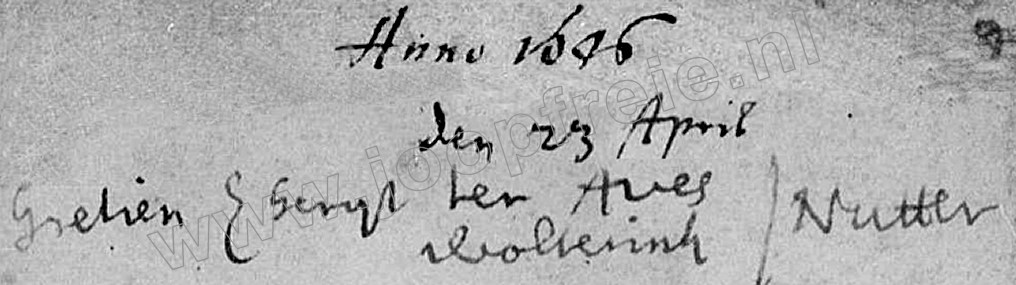 Anno 1686
den 23 April
Gretien Ebergt ter Aves / Nutter
Wolterink
www.joopfreie.nl